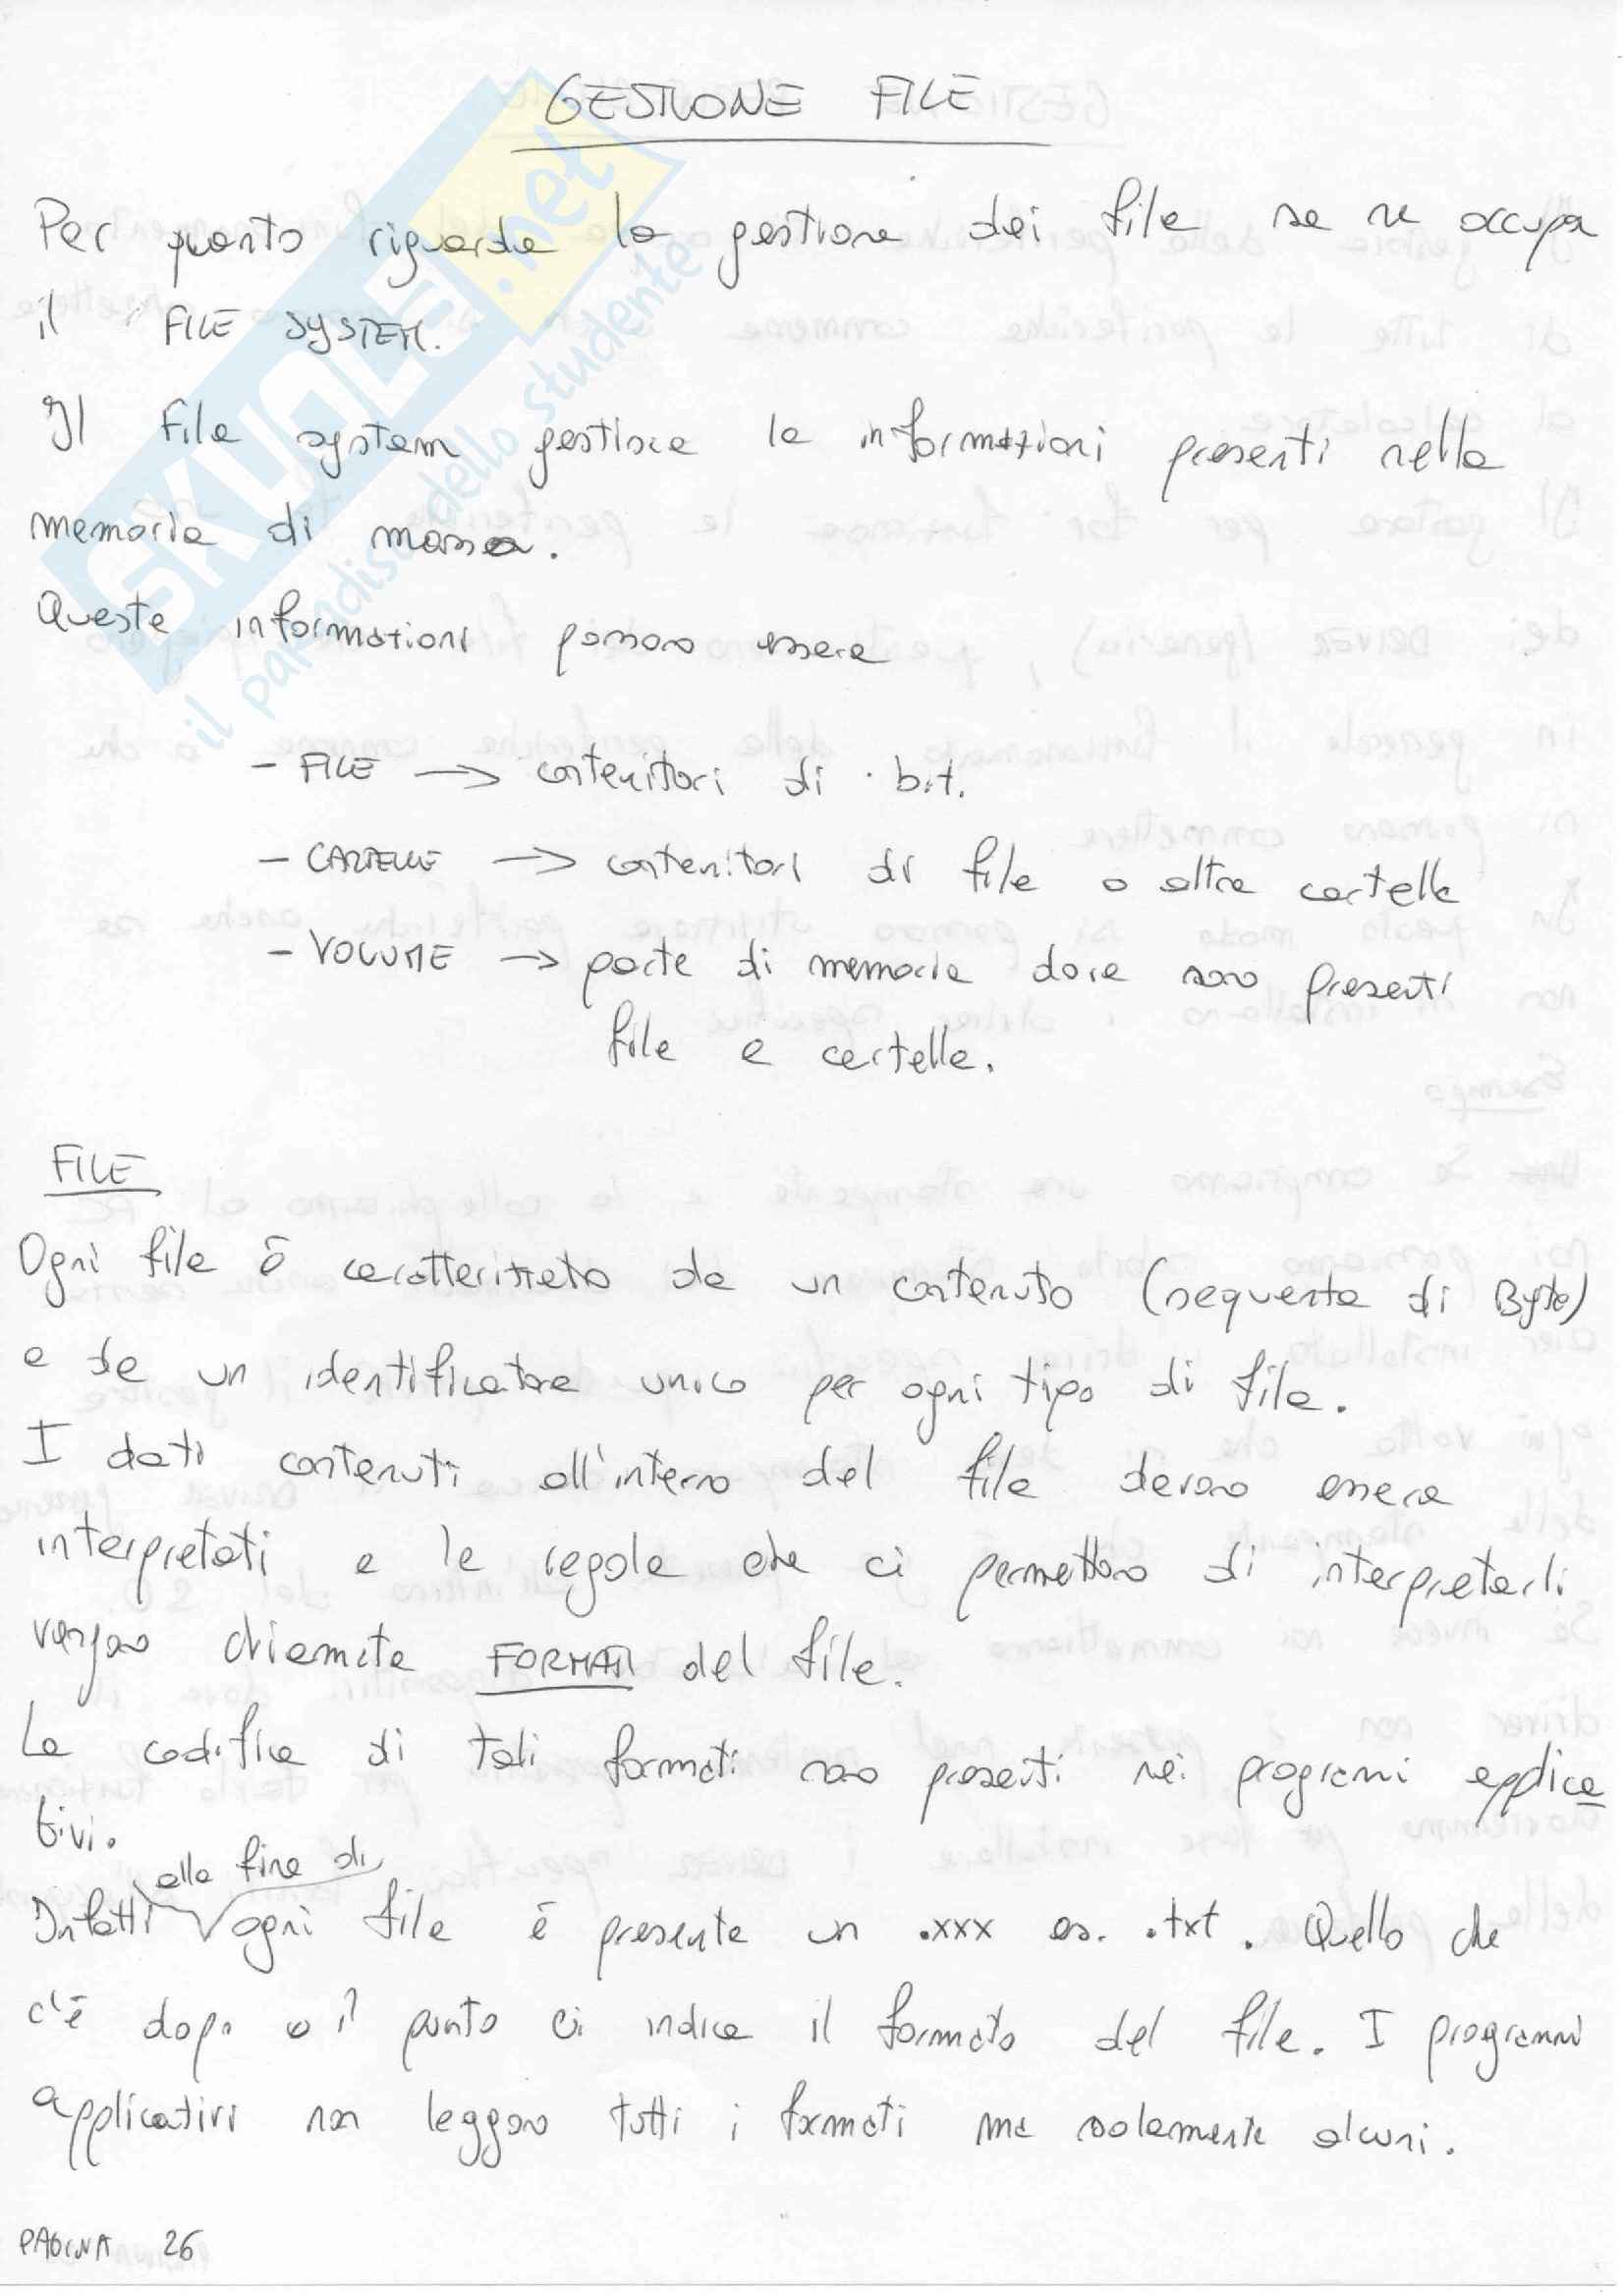 GESTIONE FILE
Per quanto riguarda la gestione dei file se ne occupa
il FILE SYSTEM.
Il File system gestisce le informazioni presenti nella
memoria di massa.
Queste informazioni possono essere
- FILE -> contenitori di bit.
- CARTELLE -> contenitori di file o altre cartelle
- VOLUME -> parte di memoria dove sono presenti
file e cartelle.
FILE
Ogni file è caratterizzato da un contenuto (sequenza di Byte)
e da un identificatore unico per ogni tipo di file.
I dati contenuti all'interno del file devono essere
interpretati e le regole che ci permettono di interpretarli
vengono chiamate FORMATI del file.
Le codifica di tali formati sono presenti nei programi applica
tivi.
alla fine di
Infatti ogni file è presente un .xxx es. .txt. Quello che
c'è dopo il punto ci indica il formato del file. I programmi
applicativi non leggono tutti i formati ma solamente alcuni.
PAGINA 26
SKUOLA.net
il paradiso dello studente